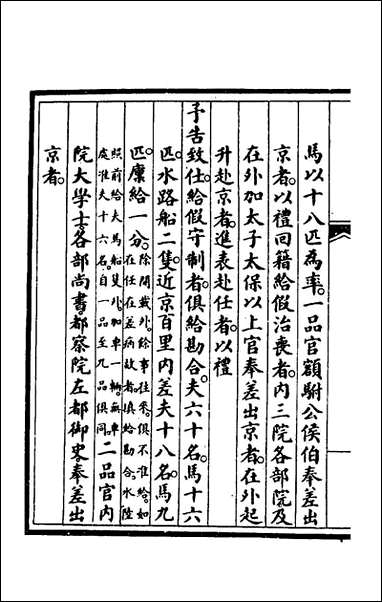 馬以十八匹為率。一品官額駙公侯伯奉差出
京者。以禮回籍給假治喪者。内三院各部院及
在外加太子太保以上官奉差出京者。在外起
升赴京者。進表赴任者。以禮
予告致仕。給假守制者。俱給勘合。夫六十名。馬十六
匹。水路船二隻。近京百里内差夫十八名。馬九
匹。廩給一分。除開載外。餘事往來。俱不准給。如在任在差病故者。俱給勘合。水陸
照前給夫馬船隻外。加車一輛。無車處准夫十六名。自一品至九品俱同。二品官内
院大學士。各部尚書。都察院左都御史。奉差出
京者。